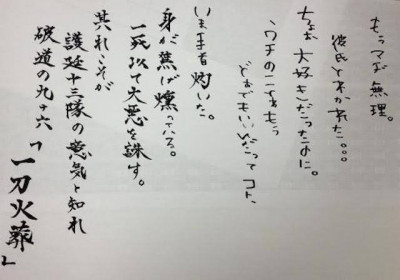 もうマヂ無理。
彼氏とわかれた。。。
ちょお大好きだったのに。
、ウチのことゎもう
どおでもいいんだってコト、
いま手首灼いた。
身が焦げ燻っている。
一死以て大悪を誅す。
其れこそが
護廷十三隊の意気と知れ
破道の九十六「一刀火葬」